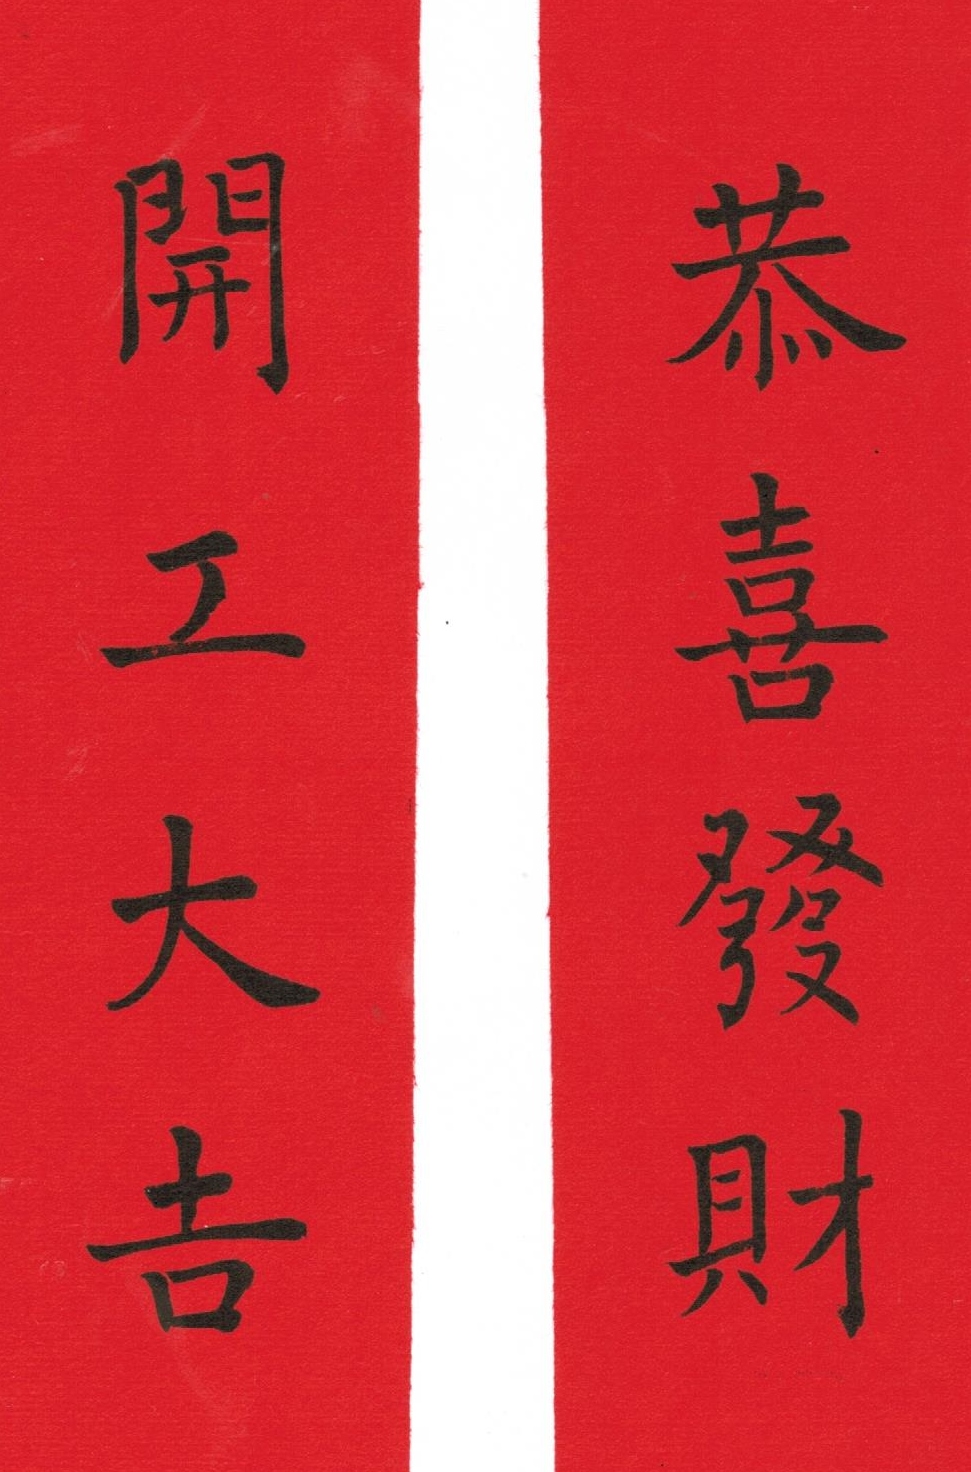 恭喜發財
開工大吉